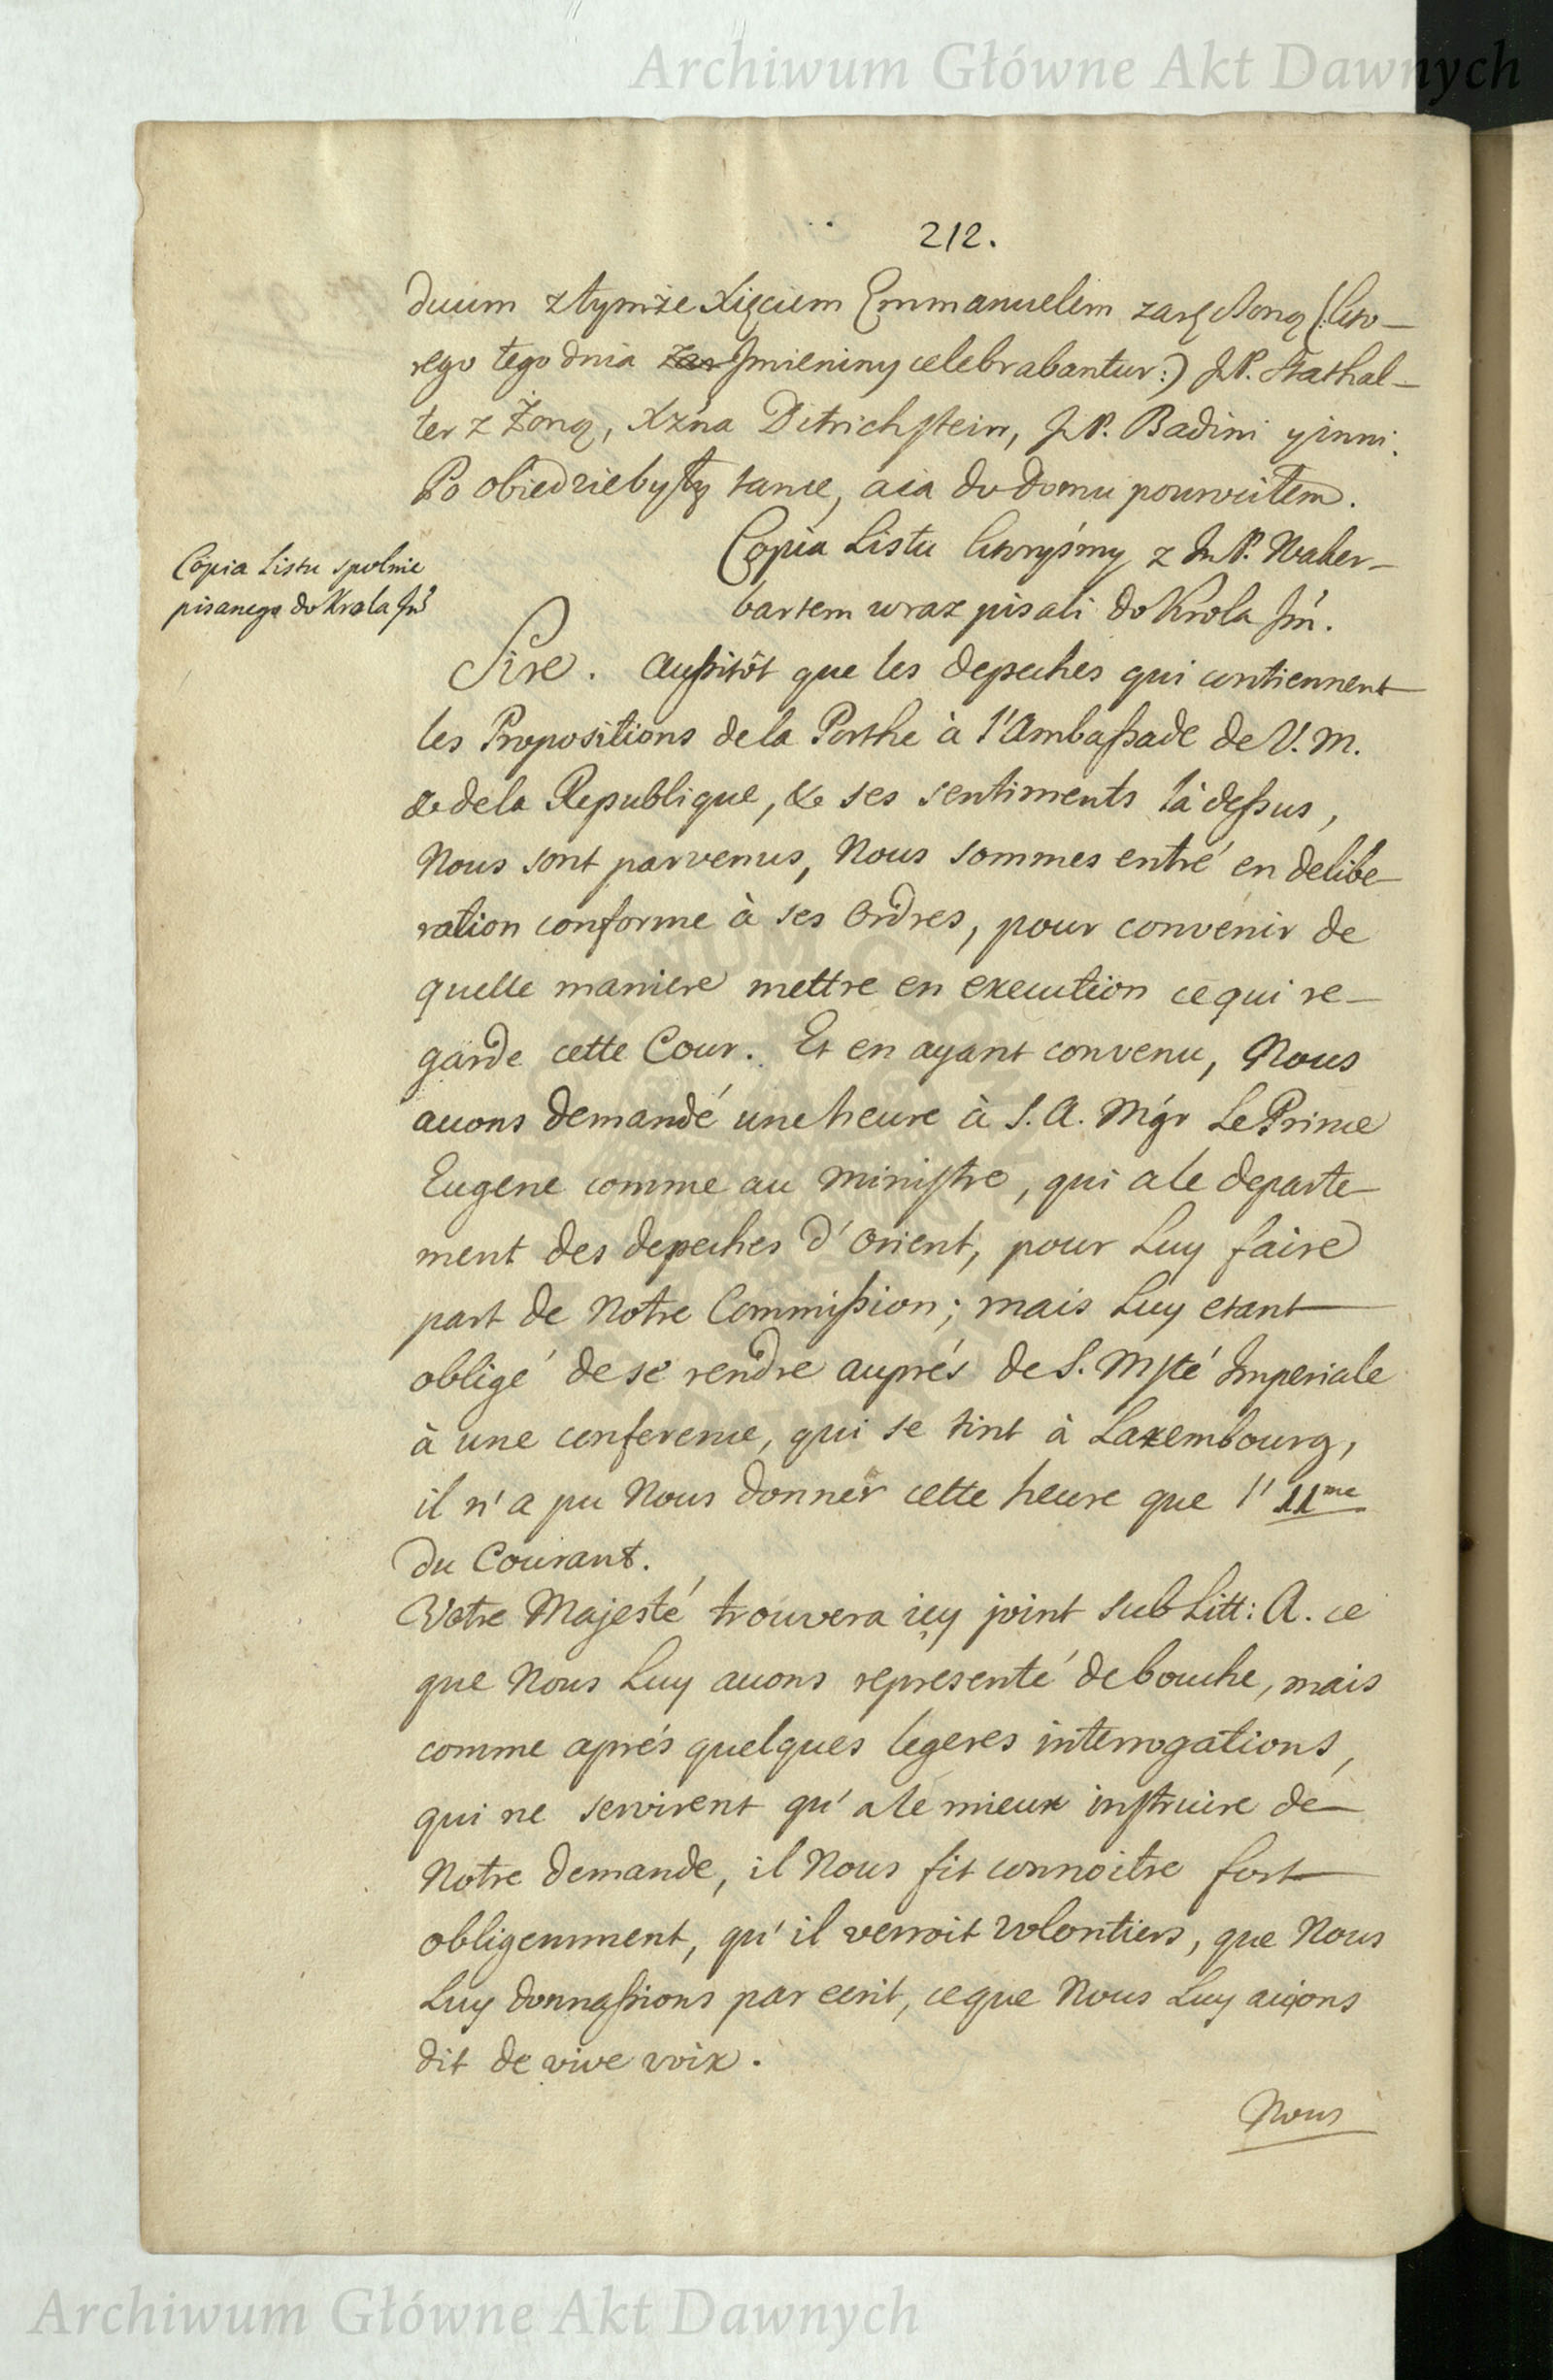 Archiwum Główne Akt Dawnych
212.
duum z tymże Xięciem Emmanuelem zaręczoną (: kto-
rego tego dnia Zar Jmieniny celebrabantur:) JP. Stathal-
ter z Żoną, Xżna Ditrichstein, JP. Badini y inni.
Po obiedzie były tance, a ia do domu powrociłem.
Copia Listu ktoryśmy z JmP. Waker-
bartem wraz pisali do Krola Jm.
Copia Listu spolnie
pisanego do Krola Jmś
Sire. Aussitôt que les depeches qui contiennent
les Propositions de la Porthe à l'Ambassade de V. M.
& de la Republique, & ses sentiments là dessus,
Nous sont parvenus, Nous sommes entré en delibe-
ration conforme à ses Ordres, pour convenir de
quelle maniere mettre en execution ce qui re-
garde cette Cour. Et en ayant convenu, Nous
avons demandé une heure à S. A. Mgr Le Prince
Eugene comme au Ministre, qui a le departe-
ment des depeches d'Orient, pour Luy faire
part de Notre Commission; mais Luy etant
obligé de se rendre auprés de S. Msté Imperiale
à une conference, qui se tint à Laxembourg,
il n'a pu Nous donner cette heure que l' 11me
du Courant.
Votre Majesté trouvera icy joint sub Litt: A. ce
que Nous Luy avons representé de bouche, mais
comme aprés quelques legeres interrogations,
qui ne servirent qu'a le mieux instruire de
Notre demande, il Nous fit connoitre fort
obligemment, qu'il verroit volontiers, que Nous
Luy donnassions par ecrit, ce que Nous Luy aiçons
dit de vive voix.
Nous
Archiwum Główne Akt Dawnych